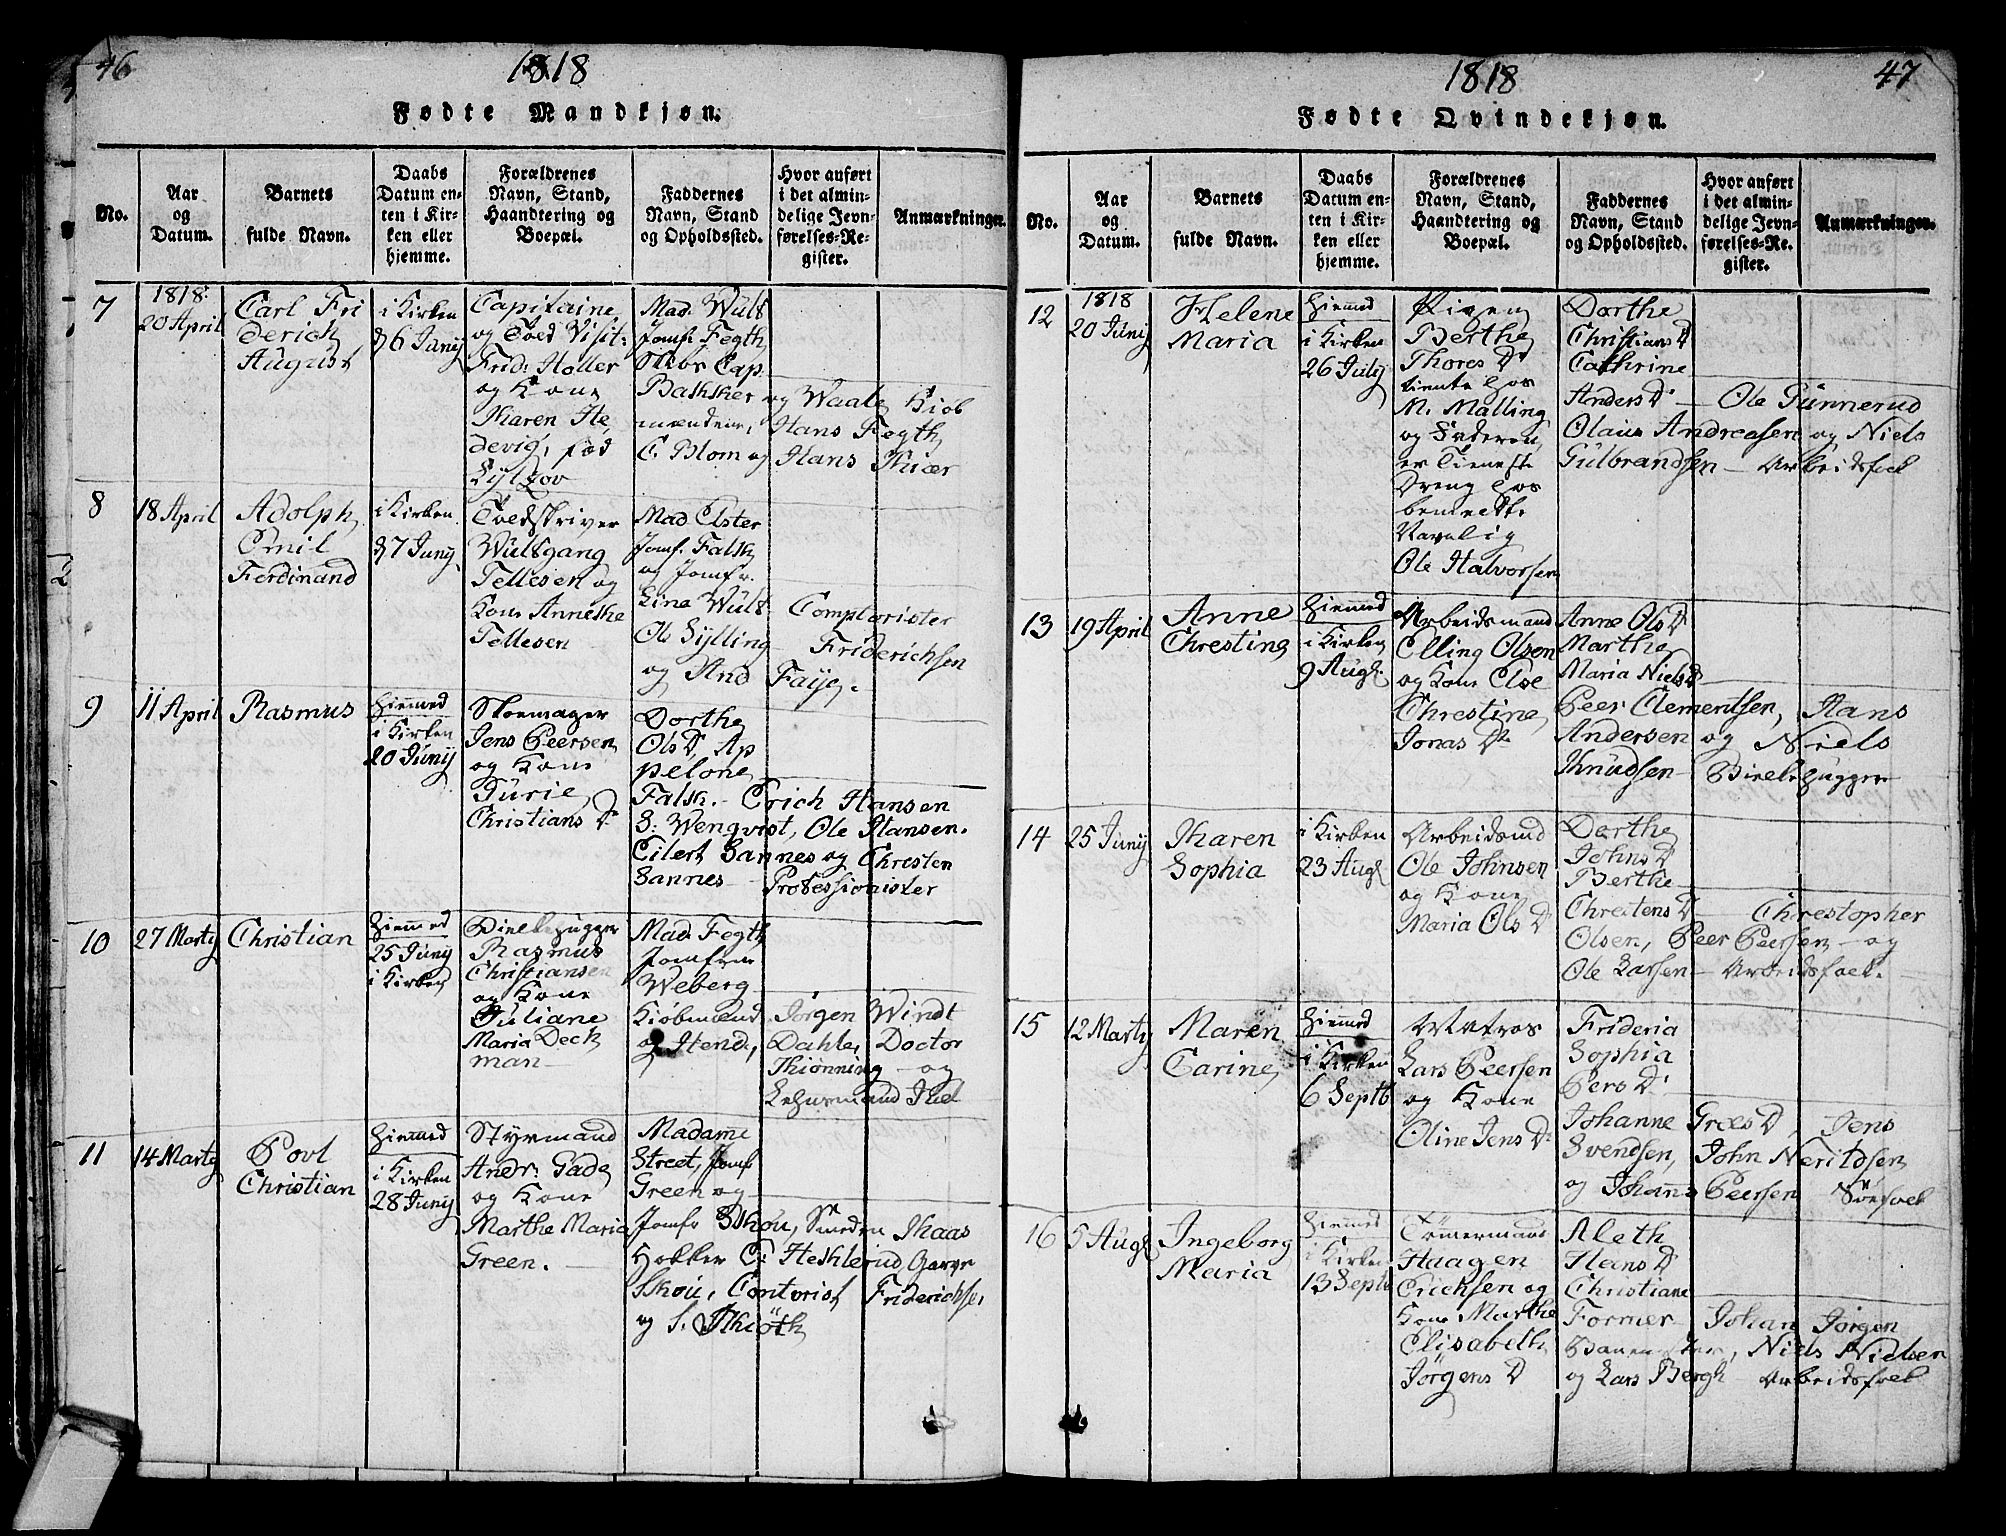 46
1818
Fødte Mandkjøn.
No.
Aar
og
Datum.
Barnets
fulde Navn.
Daabs
Datum en-
ten i Kir-
ken eller
hjemme.
Forældrenes
Navn, Stand,
Haandtering og
Boepæl.
Faddernes
Navn, Stand
og Opholdssted.
Hvor anført
i det almin-
delige Jevn-
førelses-Re-
gister.
Anmærkninger.
7
1818.
20 April
Carl Fri
derich
August
i Kirken
d 6 Junij
Capitaine
og Toed Visit:
Frid: Holler
og Kone
Karen He
devig, fød
Mad. Wulf
Jomf: Fegth
Cap.
Bakker og Waale Kiøb
mændene, Hans Fegth
C. Blom og Hans Kiær
8
18 April
Adolph
Emil
Ferdinand
i Kirken
d 7 Junij
Toedskriver
Wulfgang
Tellesen og
Kone Anneke
Tellesen
Mad Elster
Jomf. Falsk
og Jomfr.
Lina Wulf
Ole Sylling
og And
Comptorister
Friderichsen
Faye.
9
11 April
Rasmus
Hiemmed
i Kirken
20 Junij
Skoemager
Jens Peersen
og Kone
Gurie
Christians D
Dorthe
Ols D. Ap
pelone
Falsk. - Erich Hansen
S: Wenqvist, Ole Hansen.
Eilert Sannes og Chresten
Sannes - Professionister
10
27 Marty
Christian
Hiemmed
25 Junij
i Kirken
Bielkehugger
Rasmus
Christiansen
og Kone
Juliane
Maria Deck
man
Mad. Fegth
Jomfrue
Weberg
Kiøbmænd Jørgen Windt
og Hend. Dahle, Doctor
Thiønning - og
Lehnsmand Juel
11
14 Marty
Povl
Christian
Hiemmed
i Kirken
28 Junij
Styrmand
Andr: Gade
og Kone
Marthe Maria
Green.
Madame
Street, Jomf
Green og
Jomfr Skou, Smeden Haas
Hokker C: Heklerud, Garver
Skou, Contorist Friderichse,
og S. Kiøth
1818
47
Fødte Qvindekjøn.
No.
Aar
og
Datum.
Barnets
fulde Navn.
Daabs
Datum en-
ten i Kir-
ken eller
hjemme.
Forældrenes
Navn, Stand,
Haandtering og
Boepæl.
Faddernes
Navn, Stand
og Opholdssted.
Hvor anført
i det almin-
delige Jevn-
førelses-Re-
gister.
Anmærkninger.
12
1818
20 Junij
Helene
Maria
Hiemmed
i Kirken
26 July
Pigen
Berthe
Thores D
tiente hos
M. Malling
og Faderen
er Tieneste
Dreng hos
bemeldte
Navnlig
Ole Halvorsen
Dorthe
Christians D
Cathrine
Anders D - Ole Gunnerud
Olaus Andreasen og Niels
Gulbrandsen - Arbeidsfolk
13
19 April
Anne
Chrestine
Hiemmed
i Kirken
9 Aug.
Arbeidsmand
Elling Olsen
og Kone Else
Chrestine
Jonas D
Anne Ols D
Marthe
Maria Niels D
Peer Clementsen, Hans
Andersen og Niels
Knudsen - Bielkehugger
14
25 Junij
Karen
Sophia
i Kirken
23 Aug
Arbeidsmd
Ole Johnsen
og Kone
Maria Ols D
Dorthe
Johns D
Berthe
Chrestens D - Chrestopher
Olsen, Peer Peersen - og
Ole Larsen - Arbeidsfolk.
15
12 Marty
Maren
Carine
Hiemmed
i Kirken
6 Septb
Matros
Lars Peersen
og Kone
Oline Jens D
Frideria
Sophia
Pers D
Johanne Grees D, Jens
Svendsen, John Neritdsen
og Johans Peersen Søefolk
16
5 Aug
Ingeborg
Maria
Hiemmed
i Kirken
13 Septb
Tømermand
Haagen
Ericksen og
Kone Marthe
Elisabeth
Jørgens D
Aleth
Hans D
Christiane
Former Johan Jørgen
Niels Nielsen
og Lars Bergh - Arbeidsfolk